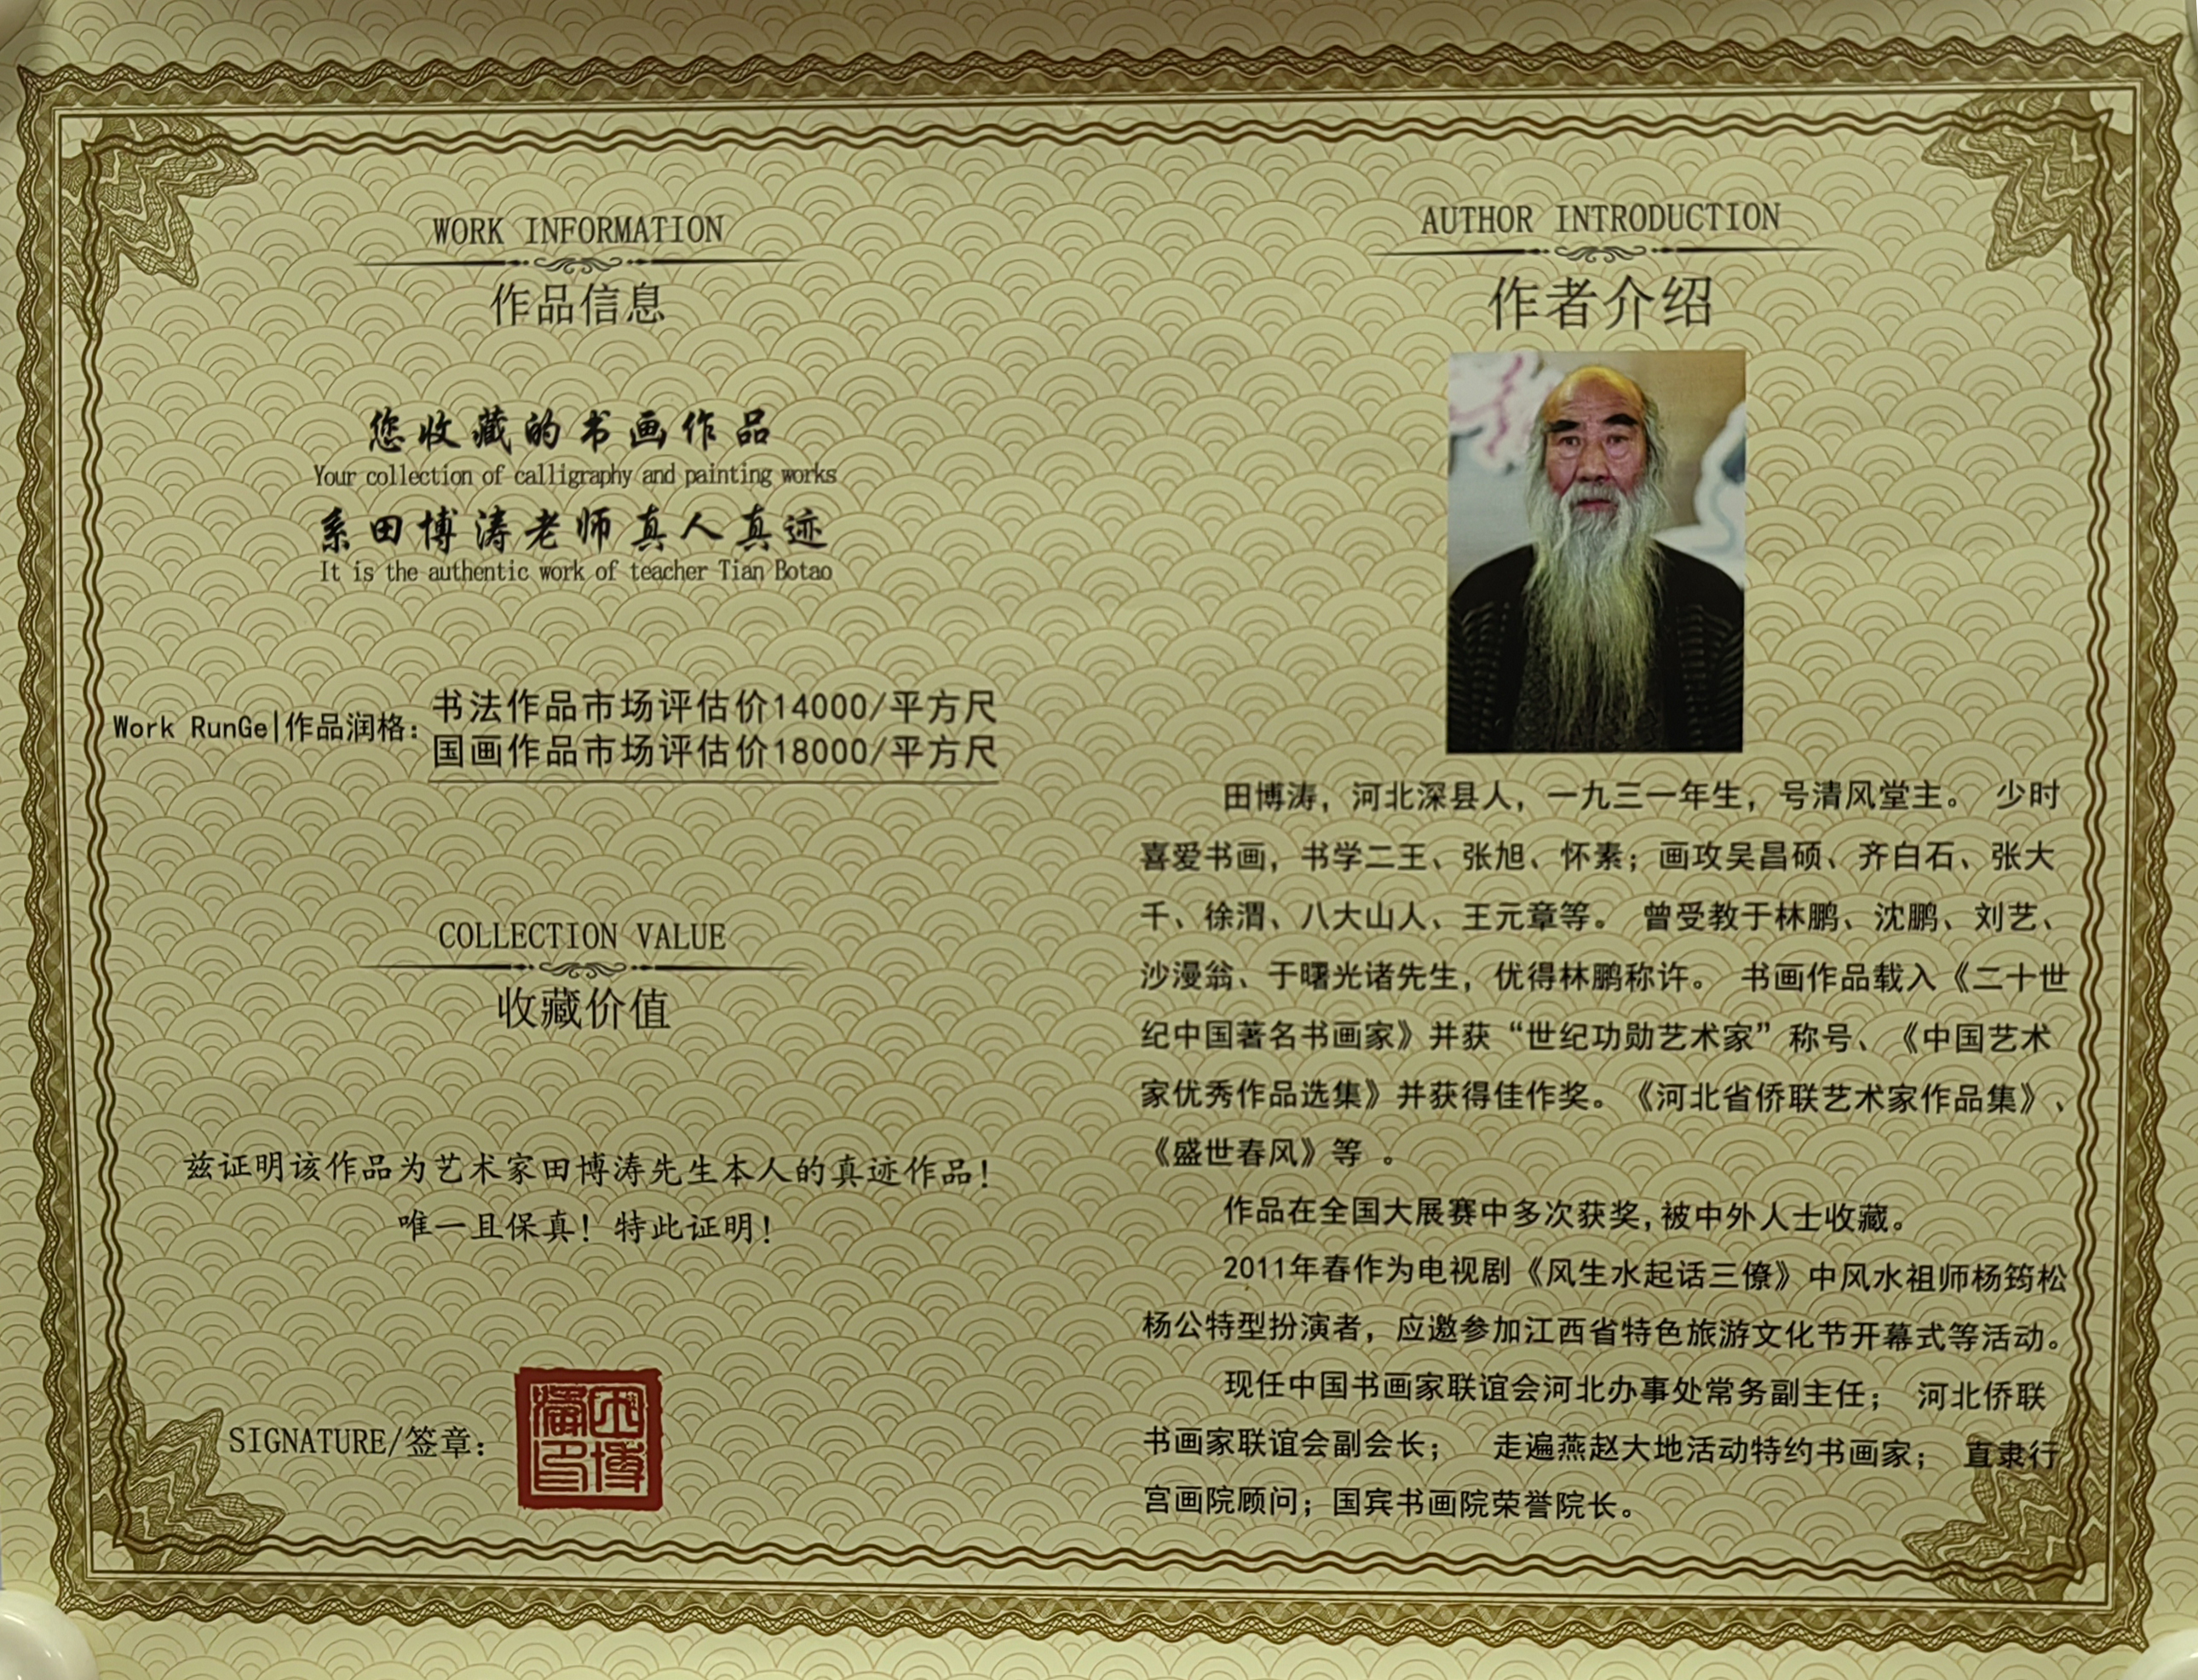 WORK INFORMATION
作品信息
您收藏的书画作品
Your collection of calligraphy and painting works
系田博涛老师真人真迹
It is the authentic work of teacher Tian Botao
Work RunGe|作品润格：
书法作品市场评估价14000/平方尺
国画作品市场评估价18000/平方尺
COLLECTION VALUE
收藏价值
兹证明该作品为艺术家田博涛先生本人的真迹作品！
唯一且保真！特此证明！
SIGNATURE/签章：
田博涛印
AUTHOR INTRODUCTION
作者介绍
田博涛，河北深县人，一九三一年生，号清风堂主。 少时
喜爱书画，书学二王、张旭、怀素；画攻吴昌硕、齐白石、张大
千、徐渭、八大山人、王元章等。 曾受教于林鹏、沈鹏、刘艺、
沙漫翁、于曙光诸先生，优得林鹏称许。 书画作品载入《二十世
纪中国著名书画家》并获“世纪功勋艺术家”称号、《中国艺术
家优秀作品选集》并获得佳作奖。《河北省侨联艺术家作品集》、
《盛世春风》等 。
作品在全国大展赛中多次获奖,被中外人士收藏。
2011年春作为电视剧《风生水起话三僚》中风水祖师杨筠松
杨公特型扮演者，应邀参加江西省特色旅游文化节开幕式等活动。
现任中国书画家联谊会河北办事处常务副主任； 河北侨联
书画家联谊会副会长； 走遍燕赵大地活动特约书画家； 直隶行
宫画院顾问；国宾书画院荣誉院长。